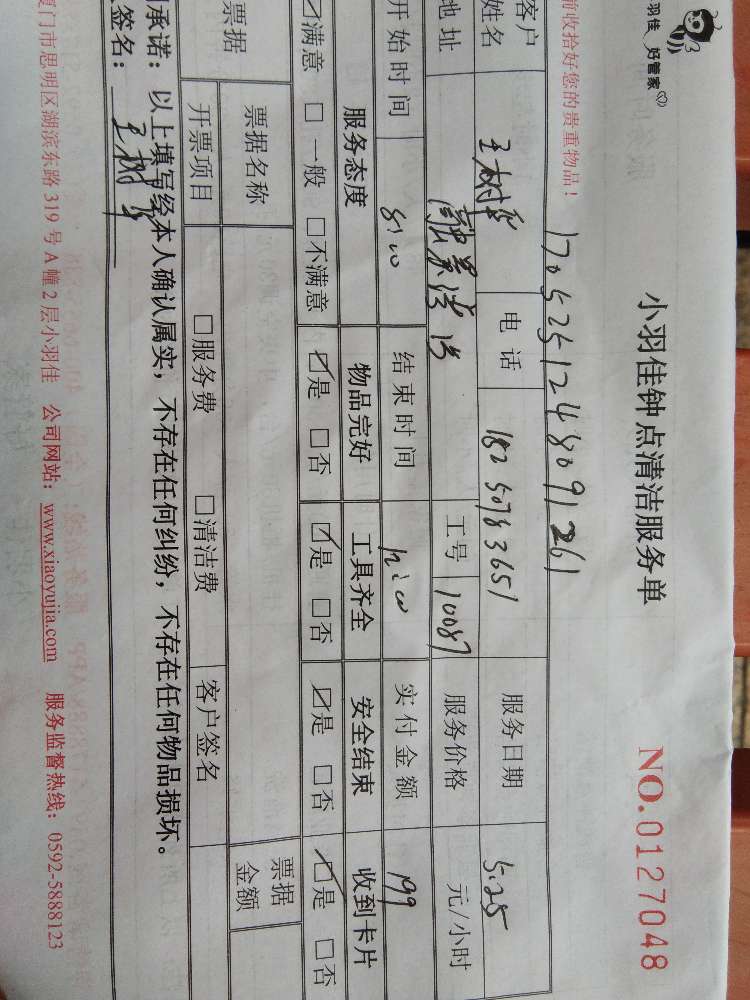 羽佳 好管家
小羽佳钟点清洁服务单
NO.0127048
前收拾好您的贵重物品!
1705251248091261
客户姓名 王树 电话 18250783651 服务日期 5.25
地址 工号 10087 服务价格 元/小时
开始时间 8:00 结束时间 实付金额 199
服务态度 物品完好 工具齐全 安全结束 收到卡片
☑满意 □一般 □不满意 ☑是 □否 ☑是 □否 ☑是 □否 ☑是 □否
票据 票据名称 票据金额
开票项目 □服务费 □清洁费 客户签名
承诺:以上填写经本人确认属实,不存在任何纠纷,不存在任何物品损坏。
签名:王树
厦门市思明区湖滨东路 319 号 A 幢 2 层小羽佳 公司网站:www.xiaoyujia.com 服务监督热线:0592-5888123